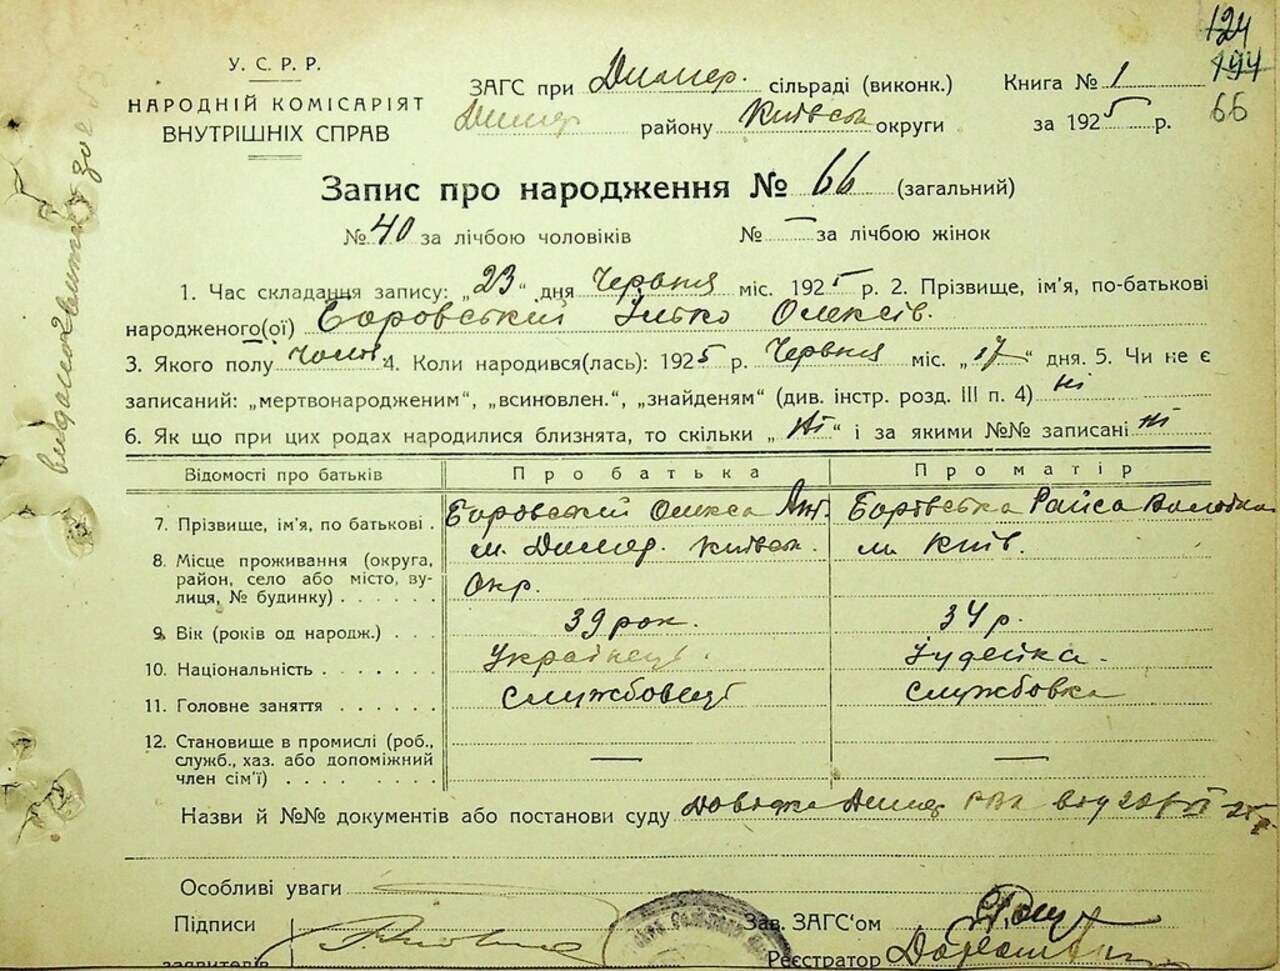 124
194
66
У. С. Р. Р.
НАРОДНІЙ КОМІСАРІЯТ
ВНУТРІШНІХ СПРАВ
ЗАГС при Димер. сільраді (виконк.)
Димер району Київськ округи
Книга № 1
за 1925 р.
Запис про народження № 66 (загальний)
№ 40 за лічбою чоловіків № — за лічбою жінок
1. Час складання запису: „23“ дня Червня міс. 1925 р. 2. Прізвище, ім'я, по-батькові
народженого(ої) Боровський Ілько Олексів.
3. Якого полу чолов. 4. Коли народився(лась): 1925 р. Червня міс. „17“ дня. 5. Чи не є
записаний: „мертвонародженим“, „всиновлен.“, „знайденям“ (див. інстр. розд. III п. 4) ні
6. Як що при цих родах народилися близнята, то скільки „Ні“ і за якими №№ записані ні
Відомості про батьків Про батька Про матір
7. Прізвище, ім'я, по батькові . Боровський Олекса Ант. Боровська Раїса
8. Місце проживання (округа, м. Димер. Київськ. м. Київ.
район, село або місто, ву- Окр.
лиця, № будинку) . . . . . .
9. Вік (років од народж.) . . . 39 рок. 34 р.
10. Національність . . . . . . Українець. Іудейка.
11. Головне заняття . . . . . . Службовець службовка
12. Становище в промислі (роб., — —
служб., хаз. або допоміжний
член сім'ї) . . . . . . . .
Назви й №№ документів або постанови суду Довідка Димер РВК від 20/VI 25 р.
Особливі уваги
Підписи
заявителів
Зав. ЗАГС‘ом
Реєстратор